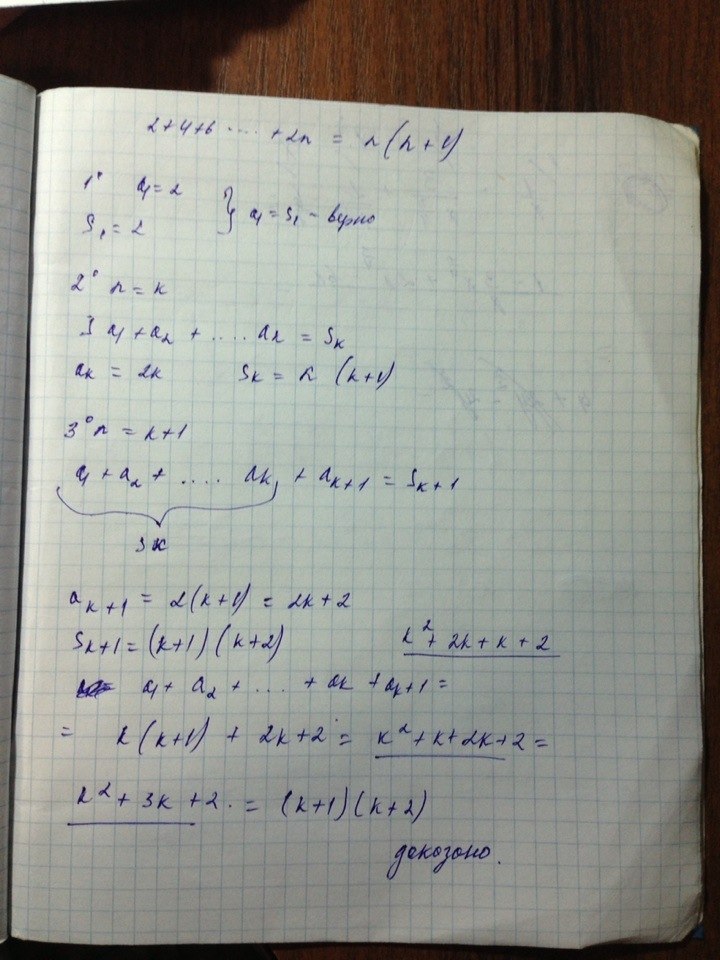 2+4+6 .... +2n = n(n+1)
1° a₁=2
S₁=2 } a₁=S₁ - верно
2° n=k
] a₁+a₂ + .... aₖ = Sₖ
aₖ = 2k Sₖ = k (k+1)
3° n=k+1
a₁+a₂+ .... aₖ + aₖ₊₁ = Sₖ₊₁
Sₖ
aₖ₊₁ = 2(k+1) = 2k+2
Sₖ₊₁=(k+1)(k+2) k²+2k+k+2
a₁+a₂+....+aₖ+aₖ₊₁=
= k(k+1) + 2k+2 = k²+k+2k+2 =
k²+3k+2. = (k+1)(k+2)
доказоно.